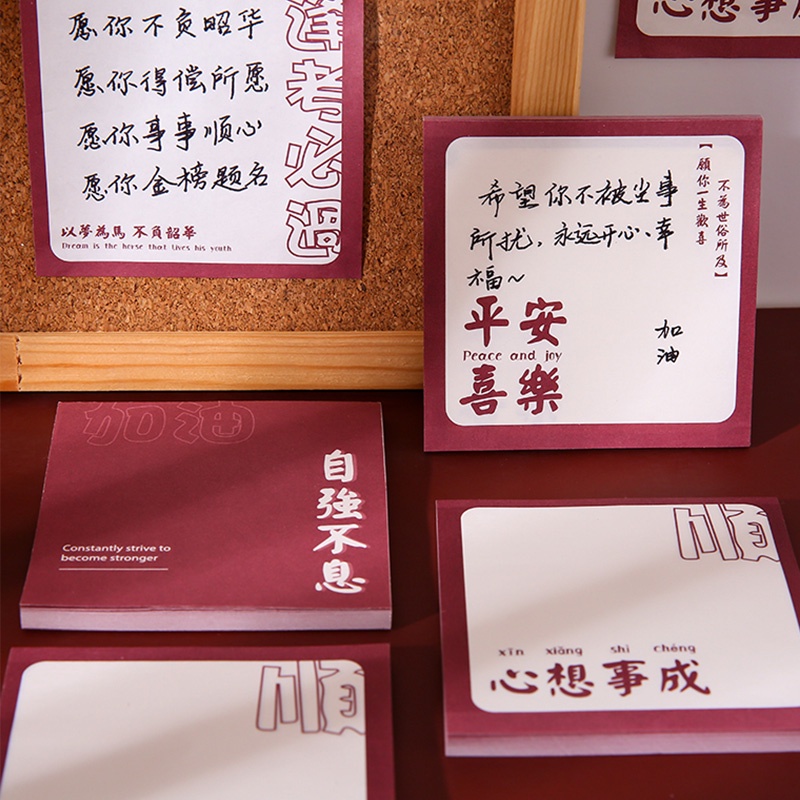 愿你不负昭华
愿你得偿所愿
愿你事事顺心
愿你金榜题名
逢考必过
以夢為馬 不負韶華
Dream is the horse that lives his youth
心想事成
【願你一生歡喜
不為世俗所及】
希望你不被尘事
所扰，永远开心、幸
福～
加
油
平安
Peace and joy
喜樂
加油
自強不息
Constantly strive to
become stronger
順
xīn xiǎng shì chéng
心想事成
順